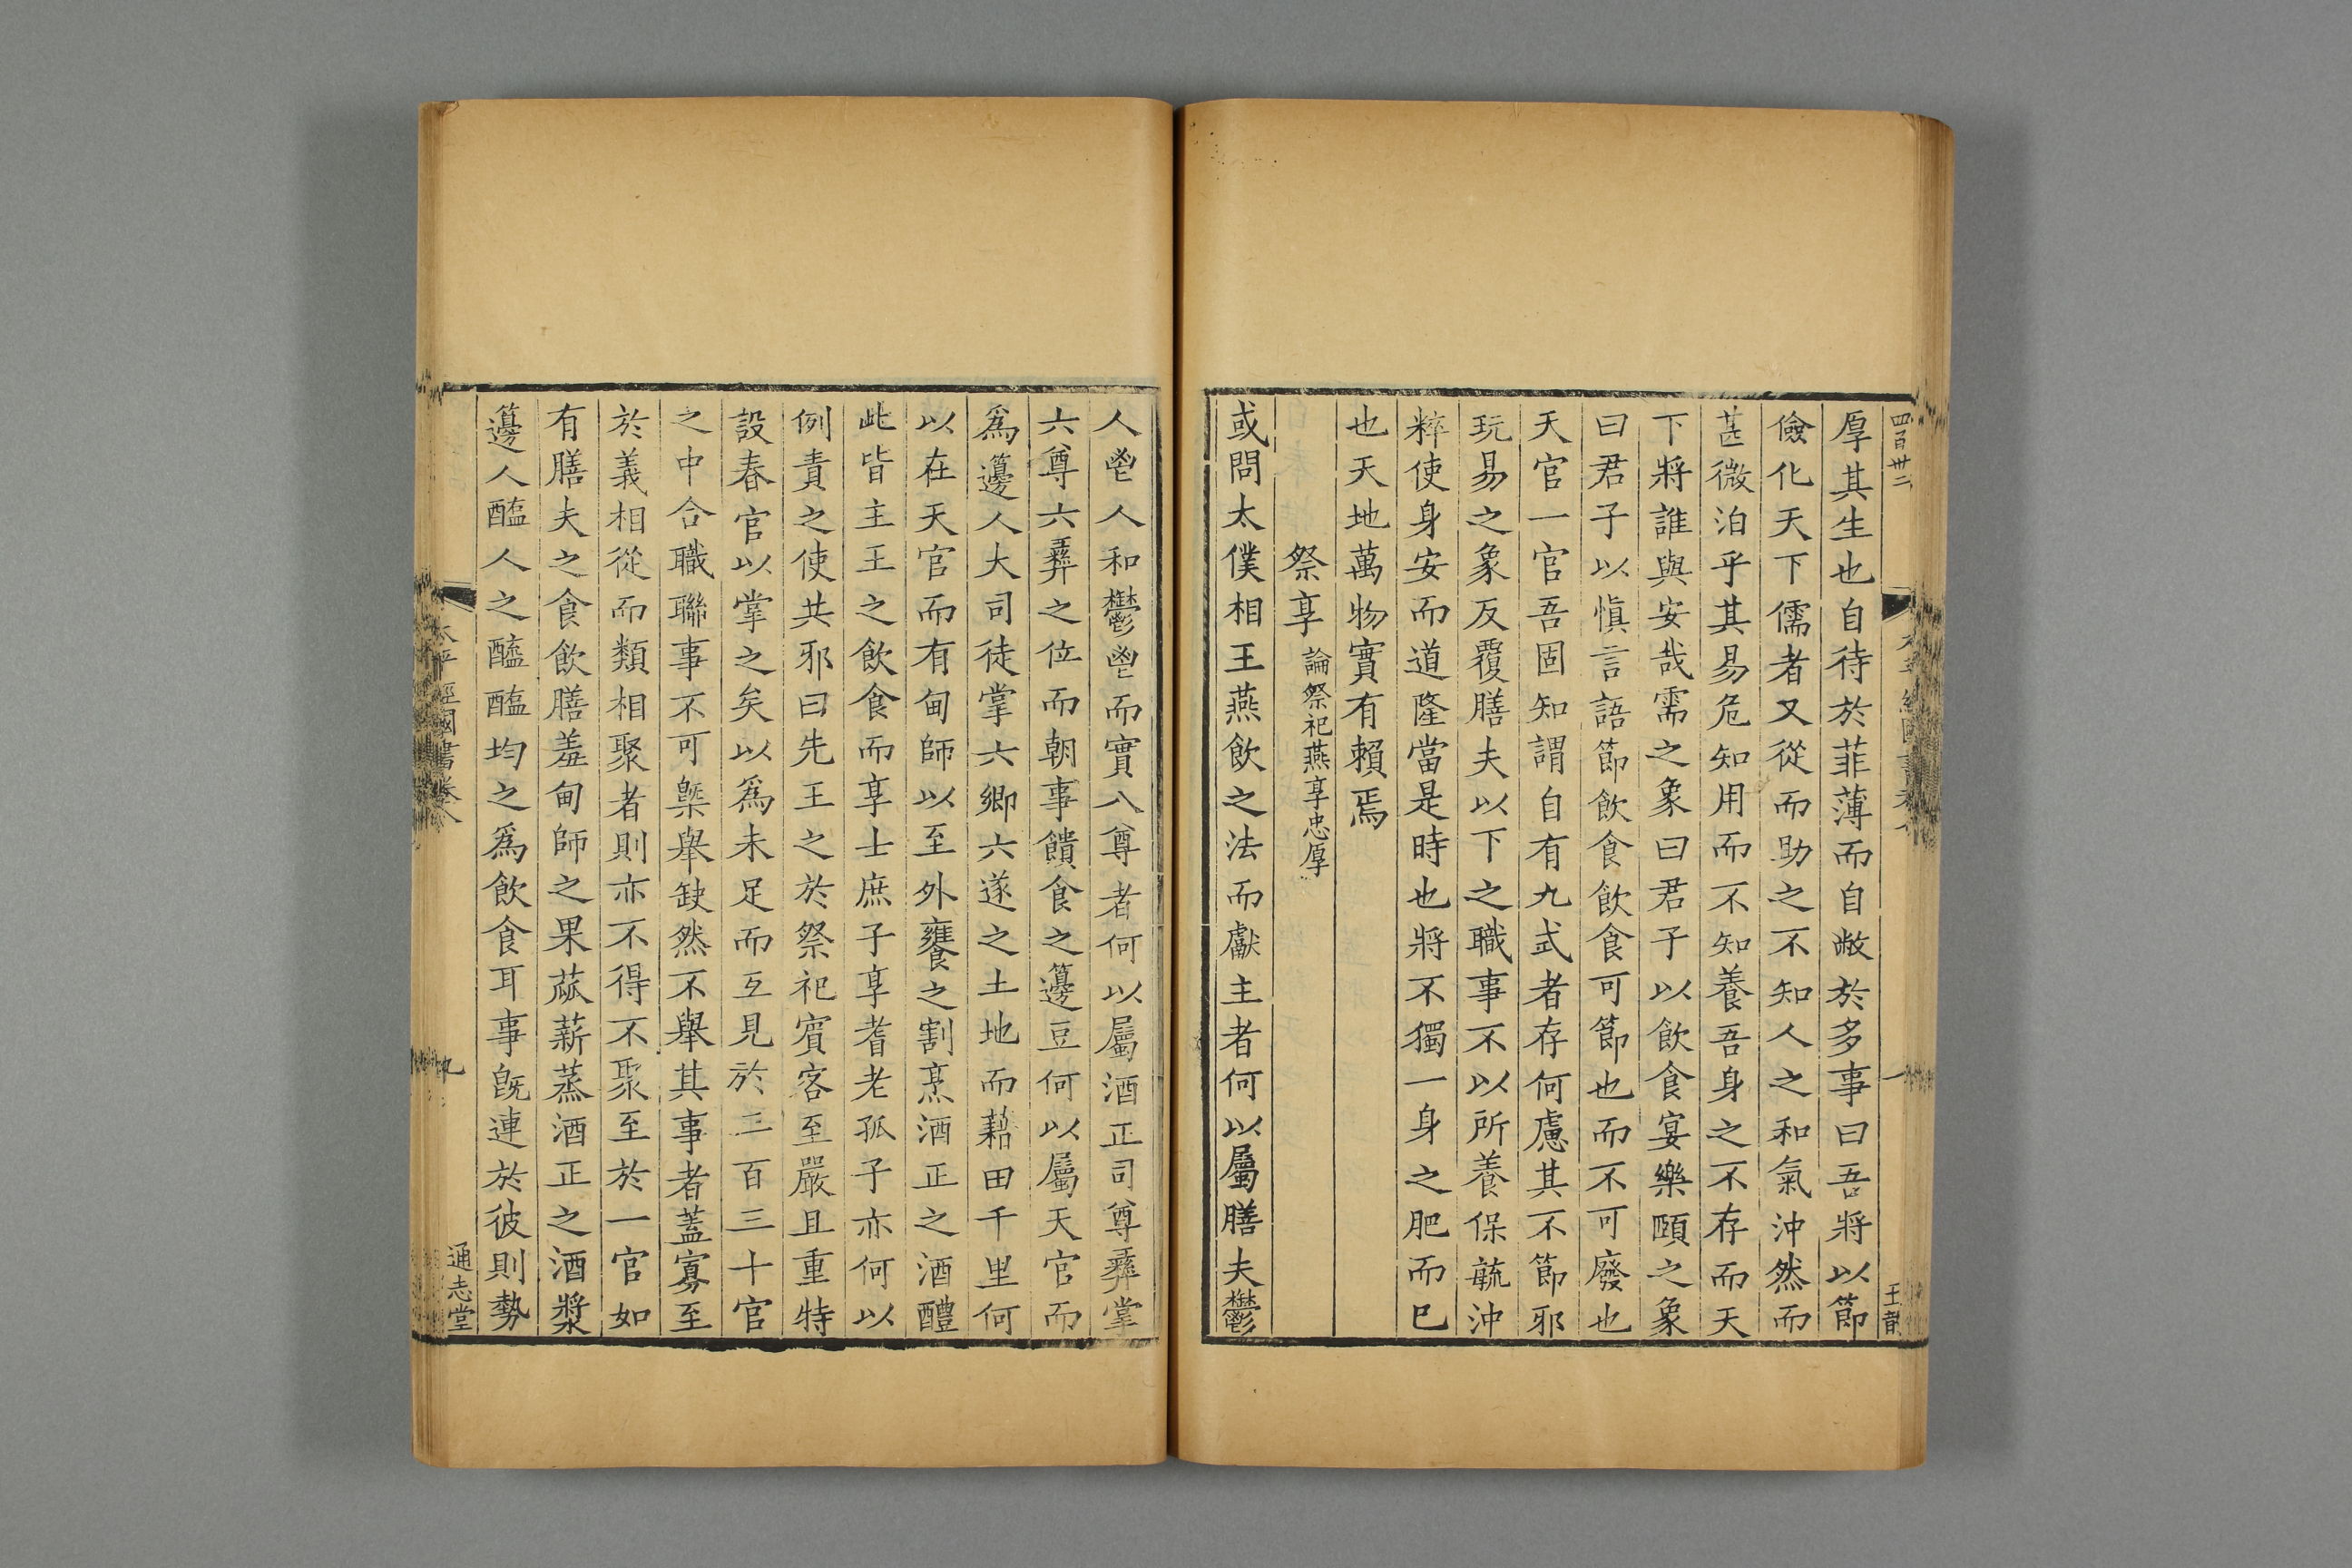 四百卅二
厚其生也自待於菲薄而自敝於多事曰吾將以節
儉化天下儒者又從而助之不知人之和氣沖然而
甚微泊乎其易危知用而不知養吾身之不存而天
下將誰與安哉需之象曰君子以飲食宴樂頤之象
曰君子以慎言語節飲食飲食可節也而不可廢也
天官一官吾固知謂自有九式者存何慮其不節邪
玩易之象反覆膳夫以下之職事不以所養保毓沖
粹使身安而道隆當是時也將不獨一身之肥而已
也天地萬物實有賴焉
祭享 論祭祀燕享忠厚
或問太僕相王燕飲之法而獻主者何以屬膳夫鬱
人鬯人和鬱鬯而實八尊者何以屬酒正司尊彝掌
六尊六彝之位而朝事饋食之籩豆何以屬天官而
爲籩人大司徒掌六鄉六遂之土地而藉田千里何
以在天官而有甸師以至外饔之割烹酒正之酒醴
此皆主王之飲食而享士庶子享耆老孤子亦何以
例責之使共邪曰先王之於祭祀賓客至嚴且重特
設春官以掌之矣以爲未足而互見於三百三十官
之中合職聯事不可槩舉缺然不舉其事者蓋寡至
於義相從而類相聚者則亦不得不聚至於一官如
有膳夫之食飲膳羞甸師之果蓏薪蒸酒正之酒漿
籩人醢人之醯醢均之爲飲食耳事旣連於彼則勢
太平經國書卷八
九
通志堂